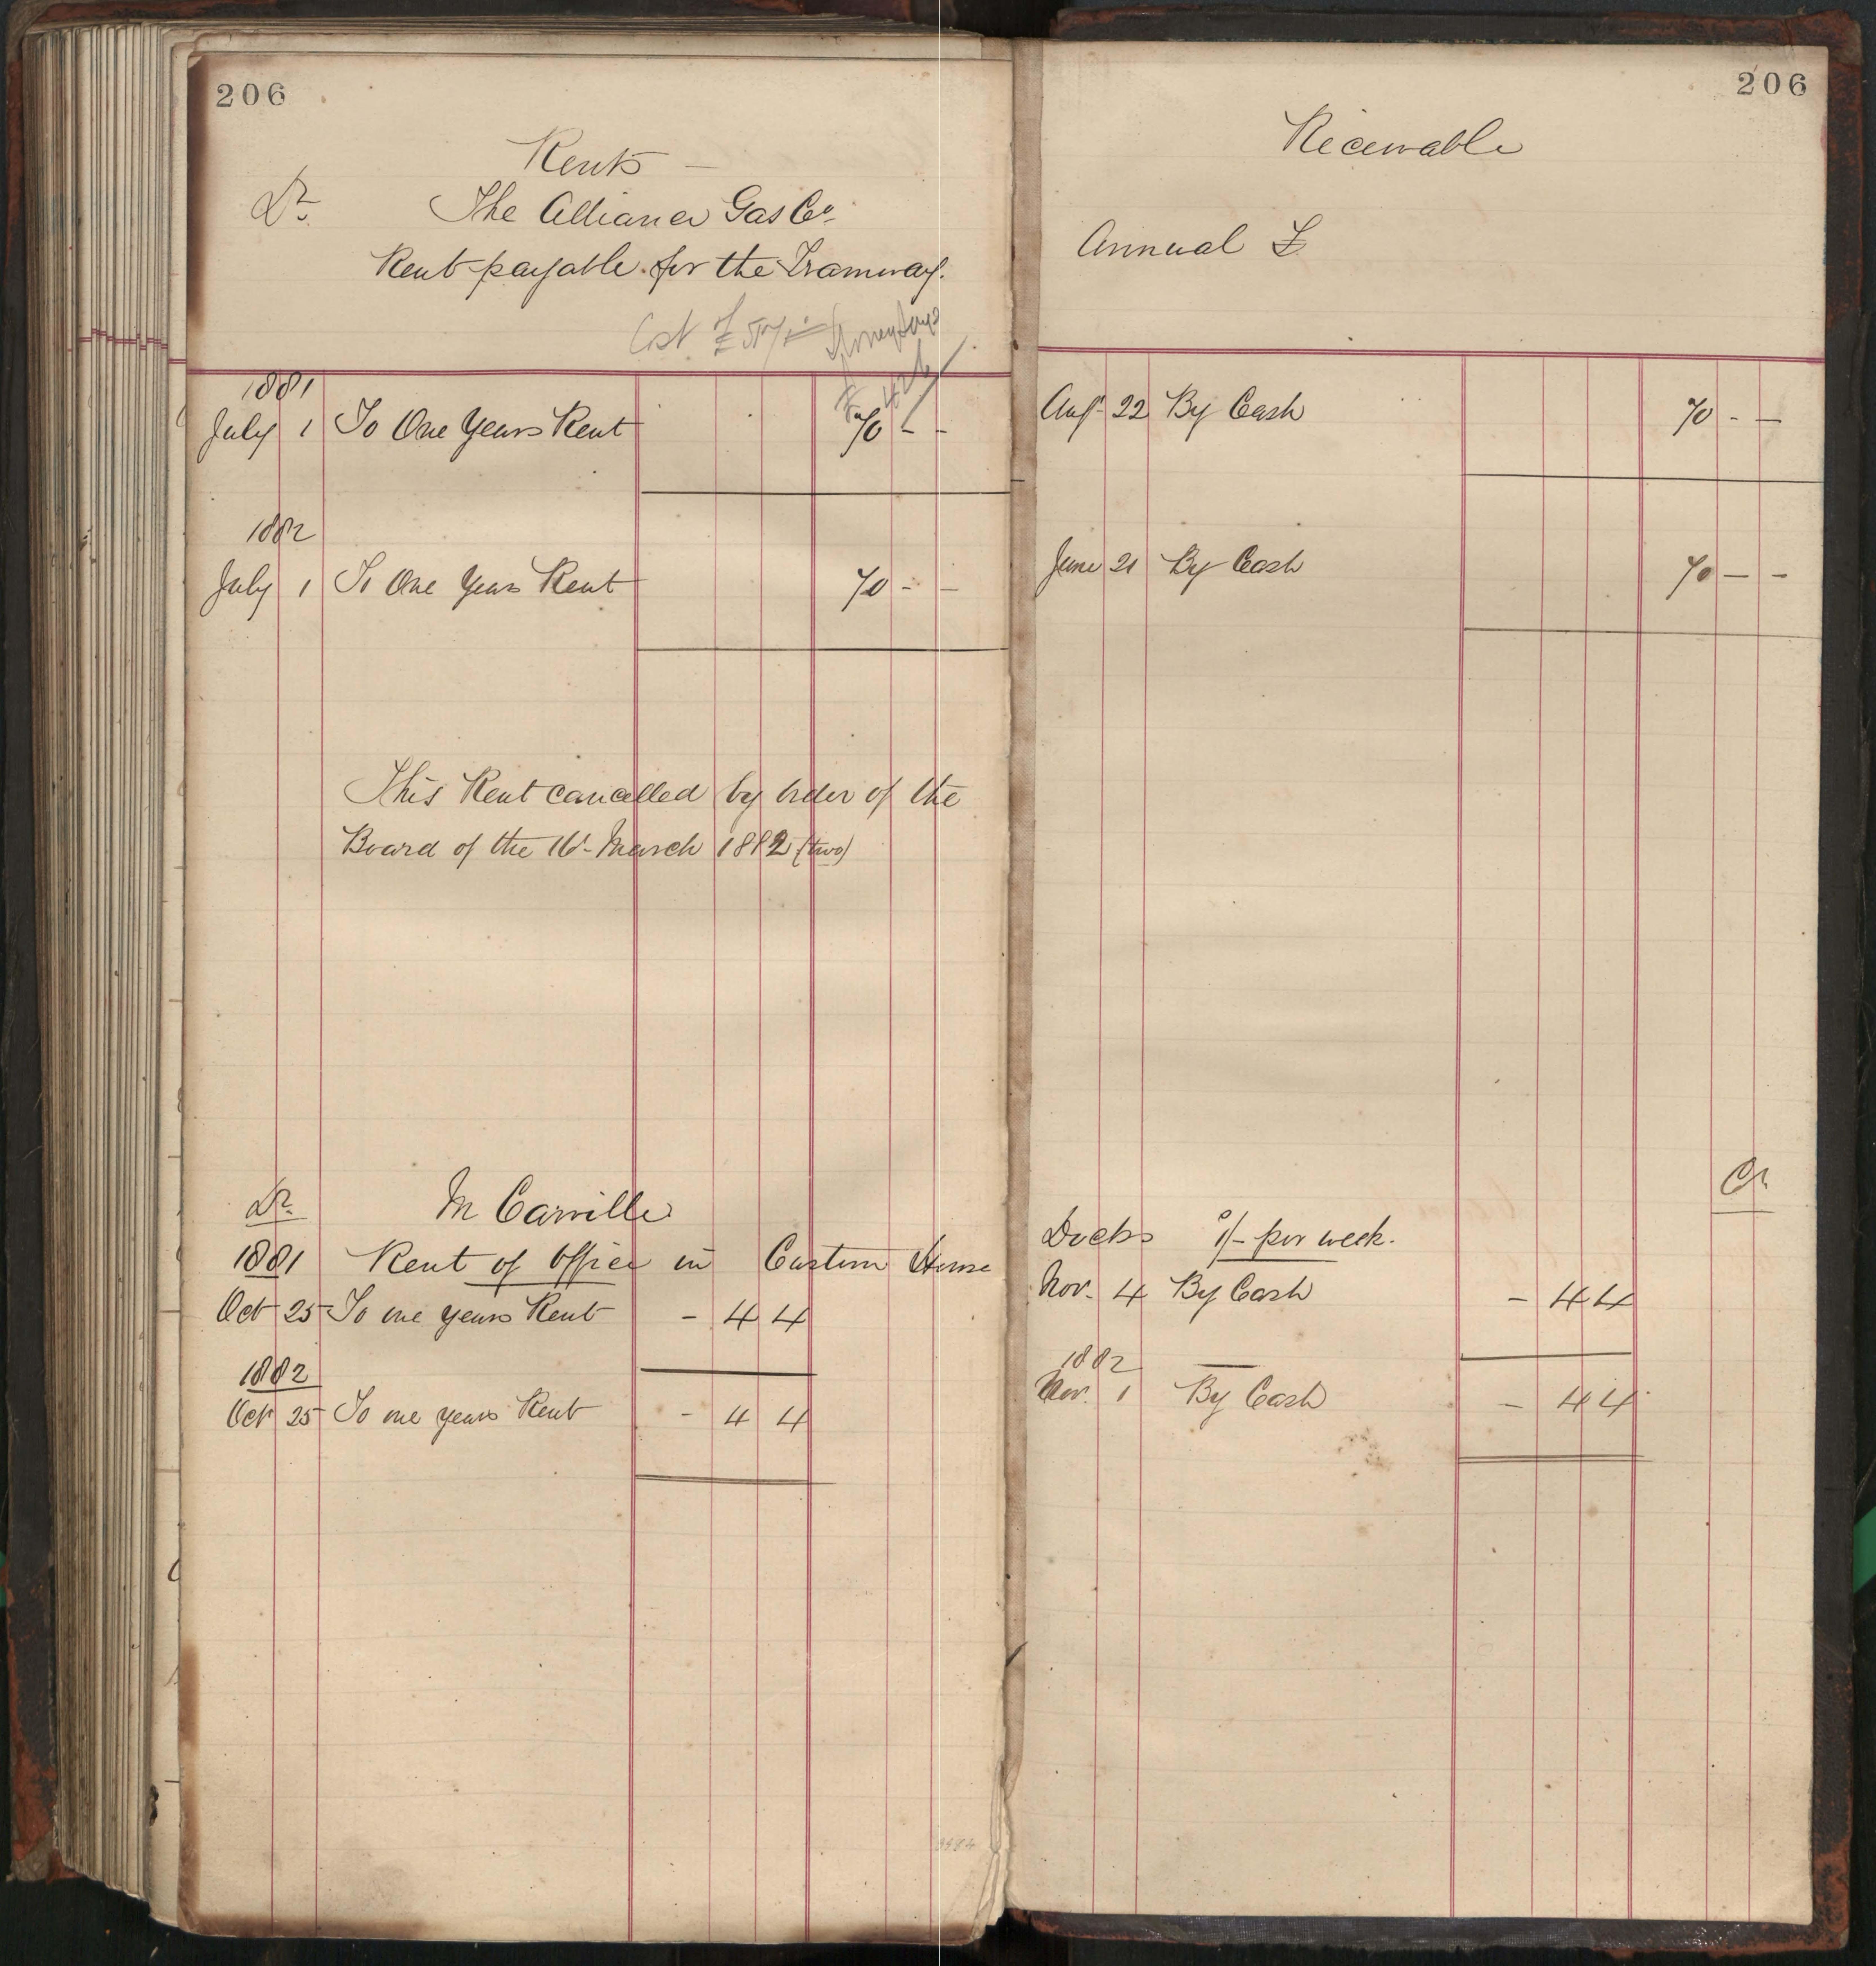 206
Rents —
Dr. The Alliance Gas Co.
Rent payable for the Tramway.
Cost of £
1881
July 1 To One Years Rent 70 - -
1882
July 1 To One Years Rent 70 - -
This Rent cancelled by order of the
Board of the 16th March 1882 (two)
Dr. M Carville
1881 Rent of Office in Custom House
Oct 25 To one years Rent - 4 4
1882
Oct 25 To one years Rent - 4 4
206
Receivable
Annual £
Augt 22 By Cash 70 - -
June 21 By Cash 70 - -
Cr
Docks 1/- per week.
Nov. 4 By Cash - 4 4
1882
Nov. 1 By Cash - 4 4